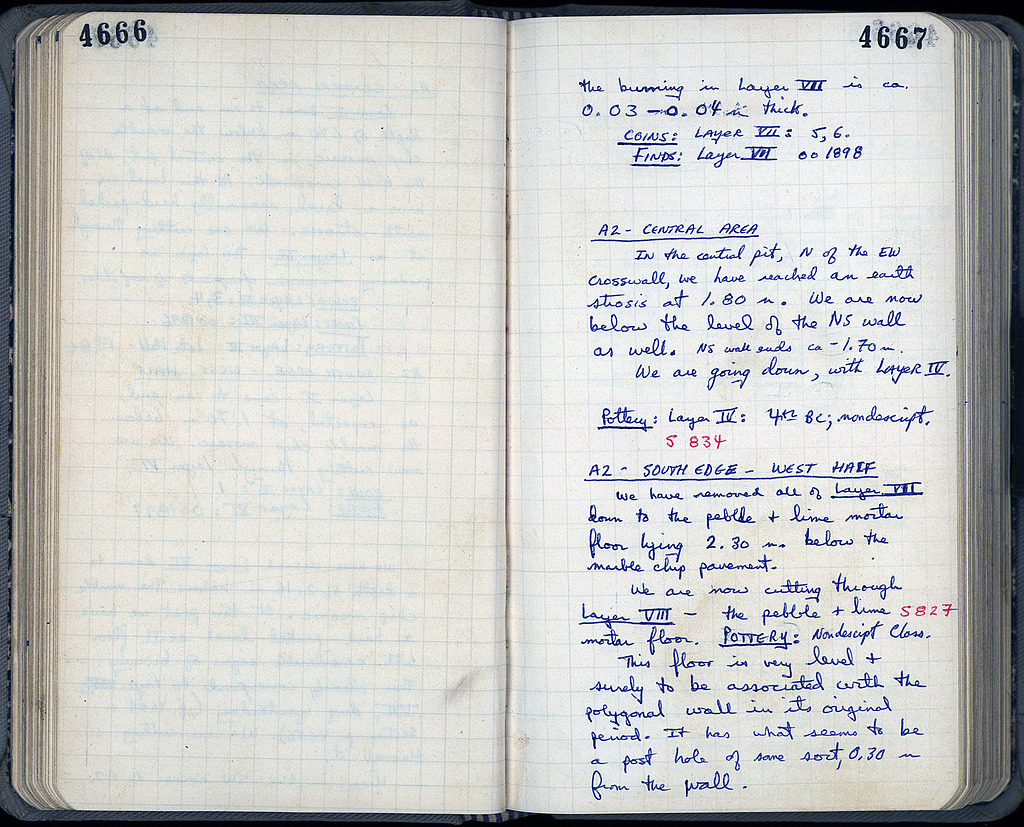 4666
4667
the burning in Layer VII is ca.
0.03 – 0.04 m thick.
COINS: LAYER VII: 5, 6.
FINDS: Layer VII oo 1898
A2 - CENTRAL AREA
In the central pit, N of the EW
crosswall, we have reached an earth
strosis at 1.80 m. We are now
below the level of the NS wall
as well. NS wall ends ca -1.70 m.
We are going down, with LAYER IV.
Pottery: Layer IV: 4th BC; nondescript.
S 834
A2 - SOUTH EDGE - WEST HALF
We have removed all of Layer VII
down to the pebble + lime mortar
floor lying 2.30 m. below the
marble chip pavement.
We are now cutting through
Layer VIII - the pebble + lime S 827
mortar floor. POTTERY: Nondescipt Class.
This floor is very level +
surely to be associated with the
polygonal wall in its original
period. It has what seems to be
a post hole of some sort, 0.30 m
from the wall.